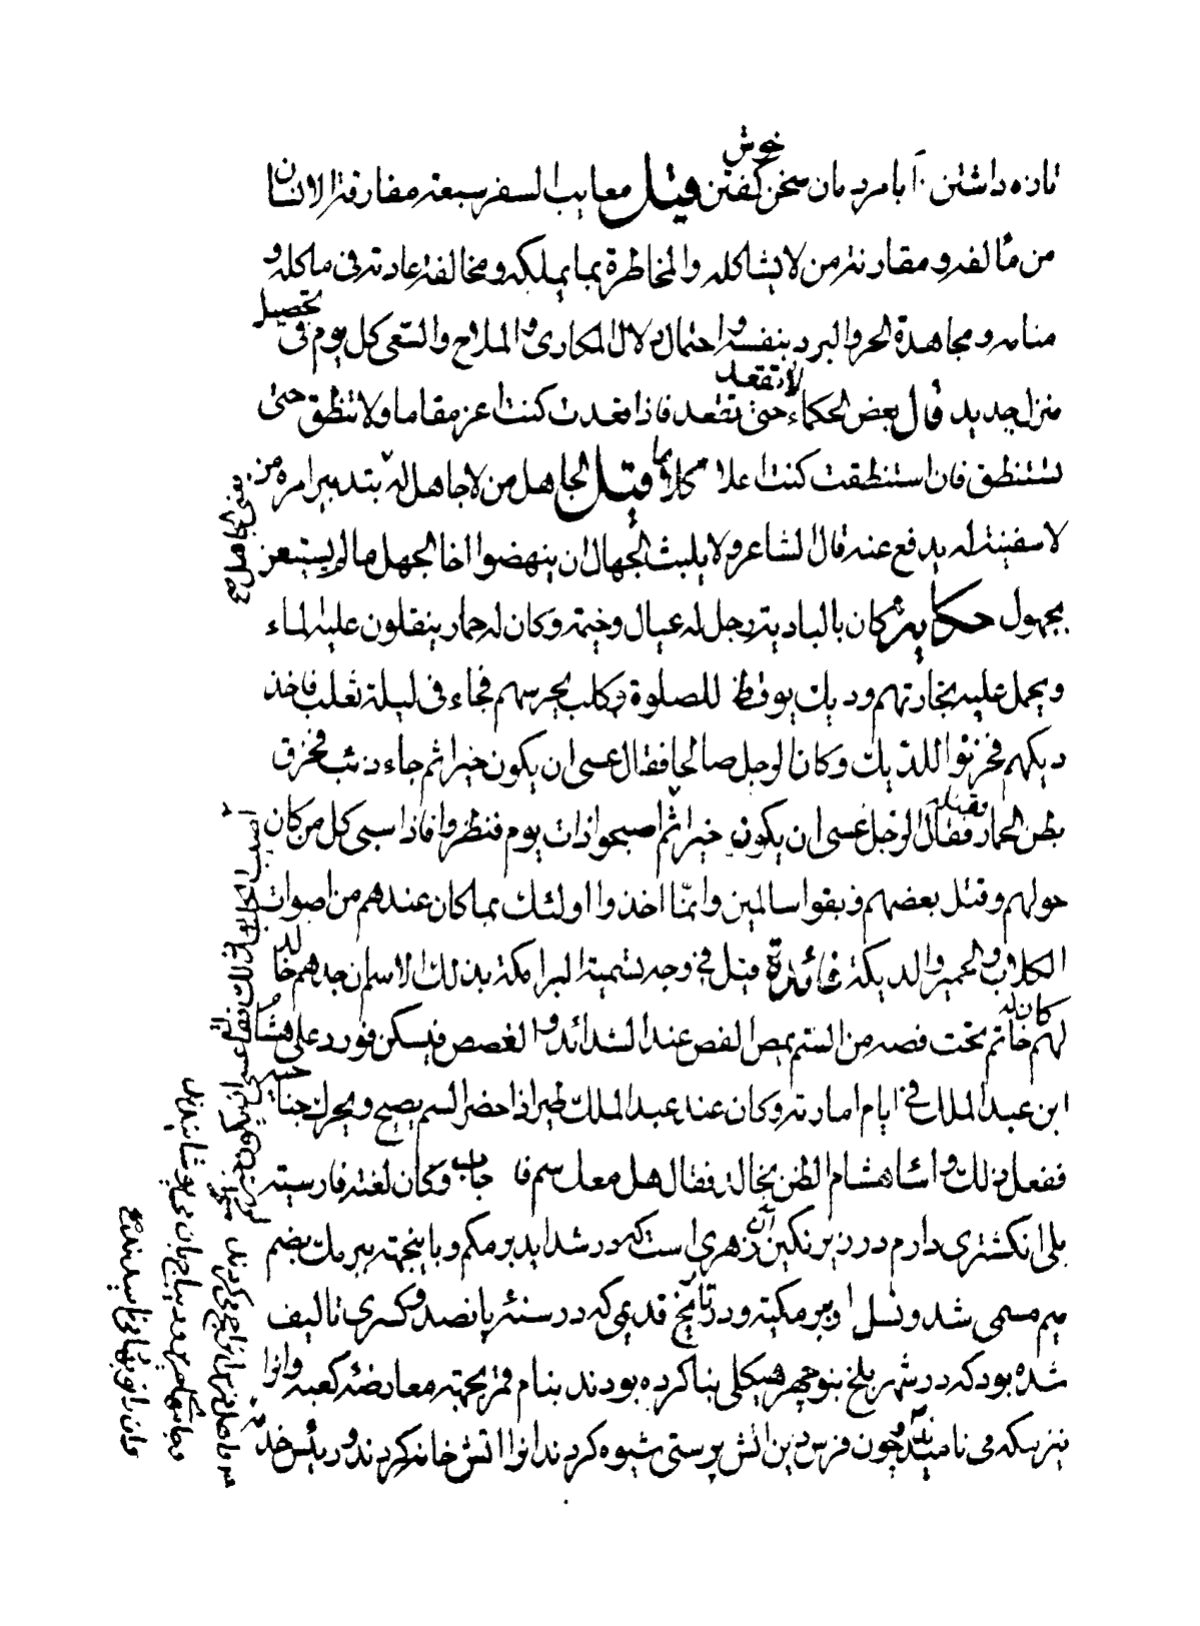 تازه داشتن ۱۰ با مردمان سخن خوش گفتن قيل معايب السفر سبعة مفارقة الانسان
من مألفه و مقارنة من لا يشاكله والمخاطرة بما يملكه ومخالفة عادته فى ماكله و
منامه و مجاهدة الحر والبرد بنفسه و احتمال دلال المكارى والملاح والسعى كل يوم فى تحصيل
منزل جديد قال بعض الحكماء لا تقعد حتى تقعد فاذا قعدت كنت اعز مقاما ولا تنطق حتى
تستنطق فان استنطقت كنت اعلا كلاما قيل الجاهل من لا جاهل له بتدبير امره من
لا سفيه له يدفع عنه قال الشاعر ولا يلبث الجهال ان ينهضوا اخا الجهل ما لم يستعن
بجهول حكاية كان بالبادية رجل له عيال وخيمة وكان له حمار ينقلون عليه الماء
ويحمل عليه تجارتهم وديك يوقظ للصلوة وكلب يحرسهم فجاء فى ليلة ثعلب فاخذ
ديكهم فحزنوا للديك وكان الرجل صالحا فقال عسى ان يكون خيرا ثم جاء ذئب فخرق
بطن الحمار فقتله فقال الرجل عسى ان يكون خيرا ثم اصبحوا ذات يوم فنظروا فاذا سبى كل من كان
حولهم وقتل بعضهم وبقوا سالمين وانما اخذوا اولئك بما كان عندهم من اصوات
الكلاب والحمير والديكة فائدة قيل فى وجه تسمية البرامكة بذلك الاسم ان جدهم خالد
كان له خاتم تحت فصه من السم يمص الفص عند الشدائد والغصص فيسكن فورد على هشام
ابن عبد الملك فى ايام امارته وكان عند عبد الملك طير اذا حضر السم يصيح ويحرك جناحيه
ففعل ذلك واساء هشام الظن بخالد فقال هل معك سم فاجاب وكان لغته فارسية
بلى انكشترى دارم در زير نكين آن زهرى است كه در شدايد برمكم و باينجهة ببرمك بضم
ميم مسمى شد و نسل او ببرمكية و در تاريخ قديمى كه در سنه پانصد و كسرى تاليف
شده بود كه در شهر بلخ بنوچهر هيكلى بنا كرده بودند بنام قمر بجهة معارضه كعبه و انرا
نيز مكه مى ناميدند و چون فرس دين آتش پرستى شيوه كردند انرا اتش خانه كردند و رئيس خدمه
يعنى جاهل ع